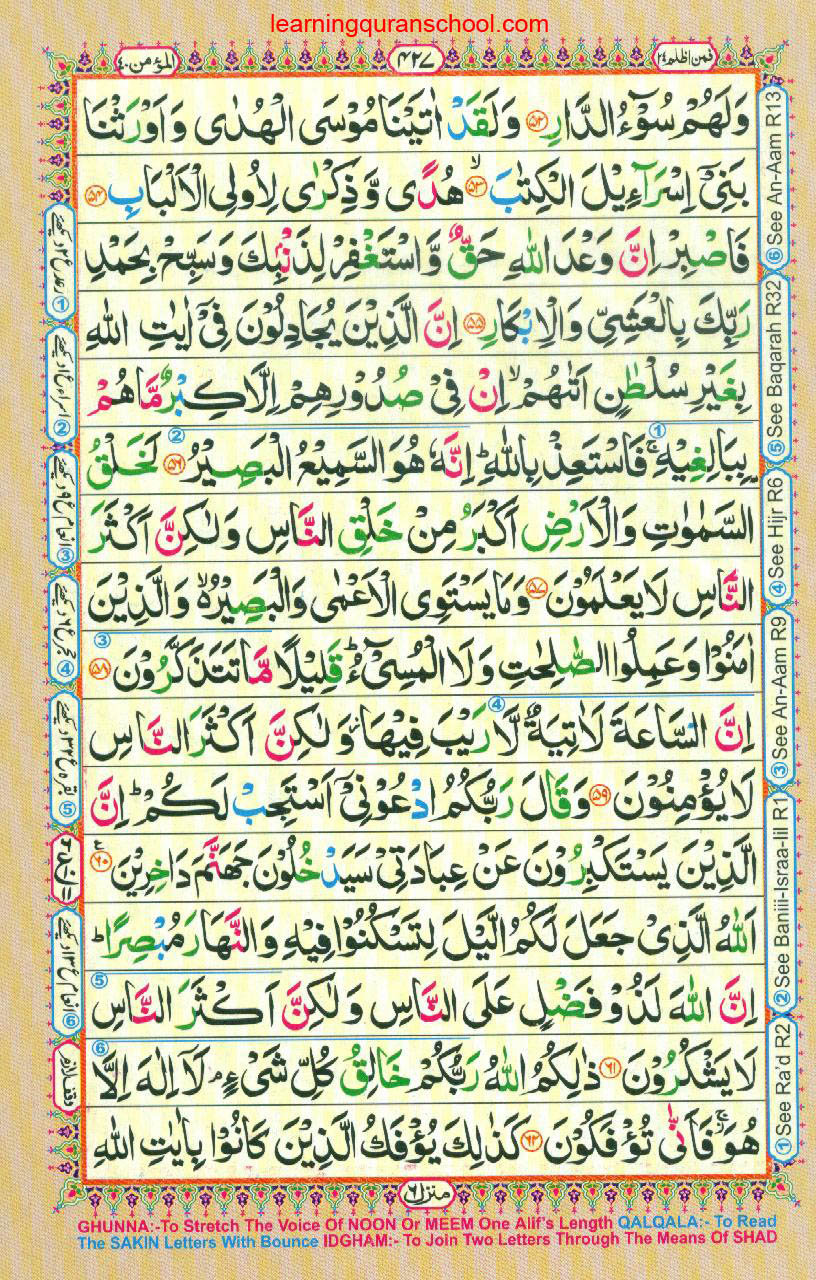 learningquranschool.com
فمن اظلم ۲۴
۴۲۷
المؤمن ۴۰
وَلَهُمْ سُوْٓءُ الدَّارِ ﴿۵۲﴾ وَلَقَدْ اٰتَيْنَا مُوْسَى الْهُدٰى وَاَوْرَثْنَا
بَنِىْٓ اِسْرَآءِيْلَ الْكِتٰبَ ﴿۵۳﴾ۙ هُدًى وَّذِكْرٰى لِاُولِى الْاَلْبَابِ ﴿۵۴﴾
فَاصْبِرْ اِنَّ وَعْدَ اللّٰهِ حَقٌّ وَّاسْتَغْفِرْ لِذَنْۢبِكَ وَسَبِّحْ بِحَمْدِ
رَبِّكَ بِالْعَشِىِّ وَالْاِبْكَارِ ﴿۵۵﴾ اِنَّ الَّذِيْنَ يُجَادِلُوْنَ فِىْٓ اٰيٰتِ اللّٰهِ
بِغَيْرِ سُلْطٰنٍ اَتٰىهُمْ ۙ اِنْ فِىْ صُدُوْرِهِمْ اِلَّا كِبْرٌ مَّا هُمْ
بِبَالِغِيْهِ ۚ فَاسْتَعِذْ بِاللّٰهِ ؕ اِنَّهٗ هُوَ السَّمِيْعُ الْبَصِيْرُ ﴿۵۶﴾ لَخَلْقُ
السَّمٰوٰتِ وَالْاَرْضِ اَكْبَرُ مِنْ خَلْقِ النَّاسِ وَلٰكِنَّ اَكْثَرَ
النَّاسِ لَا يَعْلَمُوْنَ ﴿۵۷﴾ وَمَا يَسْتَوِى الْاَعْمٰى وَالْبَصِيْرُ ۙ وَالَّذِيْنَ
اٰمَنُوْا وَعَمِلُوا الصّٰلِحٰتِ وَلَا الْمُسِىْٓءُ ؕ قَلِيْلًا مَّا تَتَذَكَّرُوْنَ ﴿۵۸﴾
اِنَّ السَّاعَةَ لَاٰتِيَةٌ لَّا رَيْبَ فِيْهَا وَلٰكِنَّ اَكْثَرَ النَّاسِ
لَا يُؤْمِنُوْنَ ﴿۵۹﴾ وَقَالَ رَبُّكُمُ ادْعُوْنِىْٓ اَسْتَجِبْ لَكُمْ ؕ اِنَّ
الَّذِيْنَ يَسْتَكْبِرُوْنَ عَنْ عِبَادَتِىْ سَيَدْخُلُوْنَ جَهَنَّمَ دَاخِرِيْنَ ﴿۶۰﴾
اَللّٰهُ الَّذِىْ جَعَلَ لَكُمُ الَّيْلَ لِتَسْكُنُوْا فِيْهِ وَالنَّهَارَ مُبْصِرًا ؕ
اِنَّ اللّٰهَ لَذُوْ فَضْلٍ عَلَى النَّاسِ وَلٰكِنَّ اَكْثَرَ النَّاسِ
لَا يَشْكُرُوْنَ ﴿۶۱﴾ ذٰلِكُمُ اللّٰهُ رَبُّكُمْ خَالِقُ كُلِّ شَىْءٍ ۘ لَآ اِلٰهَ اِلَّا
هُوَ ۚ فَاَنّٰى تُؤْفَكُوْنَ ﴿۶۲﴾ كَذٰلِكَ يُؤْفَكُ الَّذِيْنَ كَانُوْا بِاٰيٰتِ اللّٰهِ
منزل ۶
⑥ See An-Aam R13
⑤ See Baqarah R32
④ See Hijr R6
③ See An-Aam R9
② See Baniii-Israa-Iil R1
① See Ra'd R2
وقف لازم
GHUNNA:-To Stretch The Voice Of NOON Or MEEM One Alif's Length QALQALA:- To Read
The SAKIN Letters With Bounce IDGHAM:- To Join Two Letters Through The Means Of SHAD